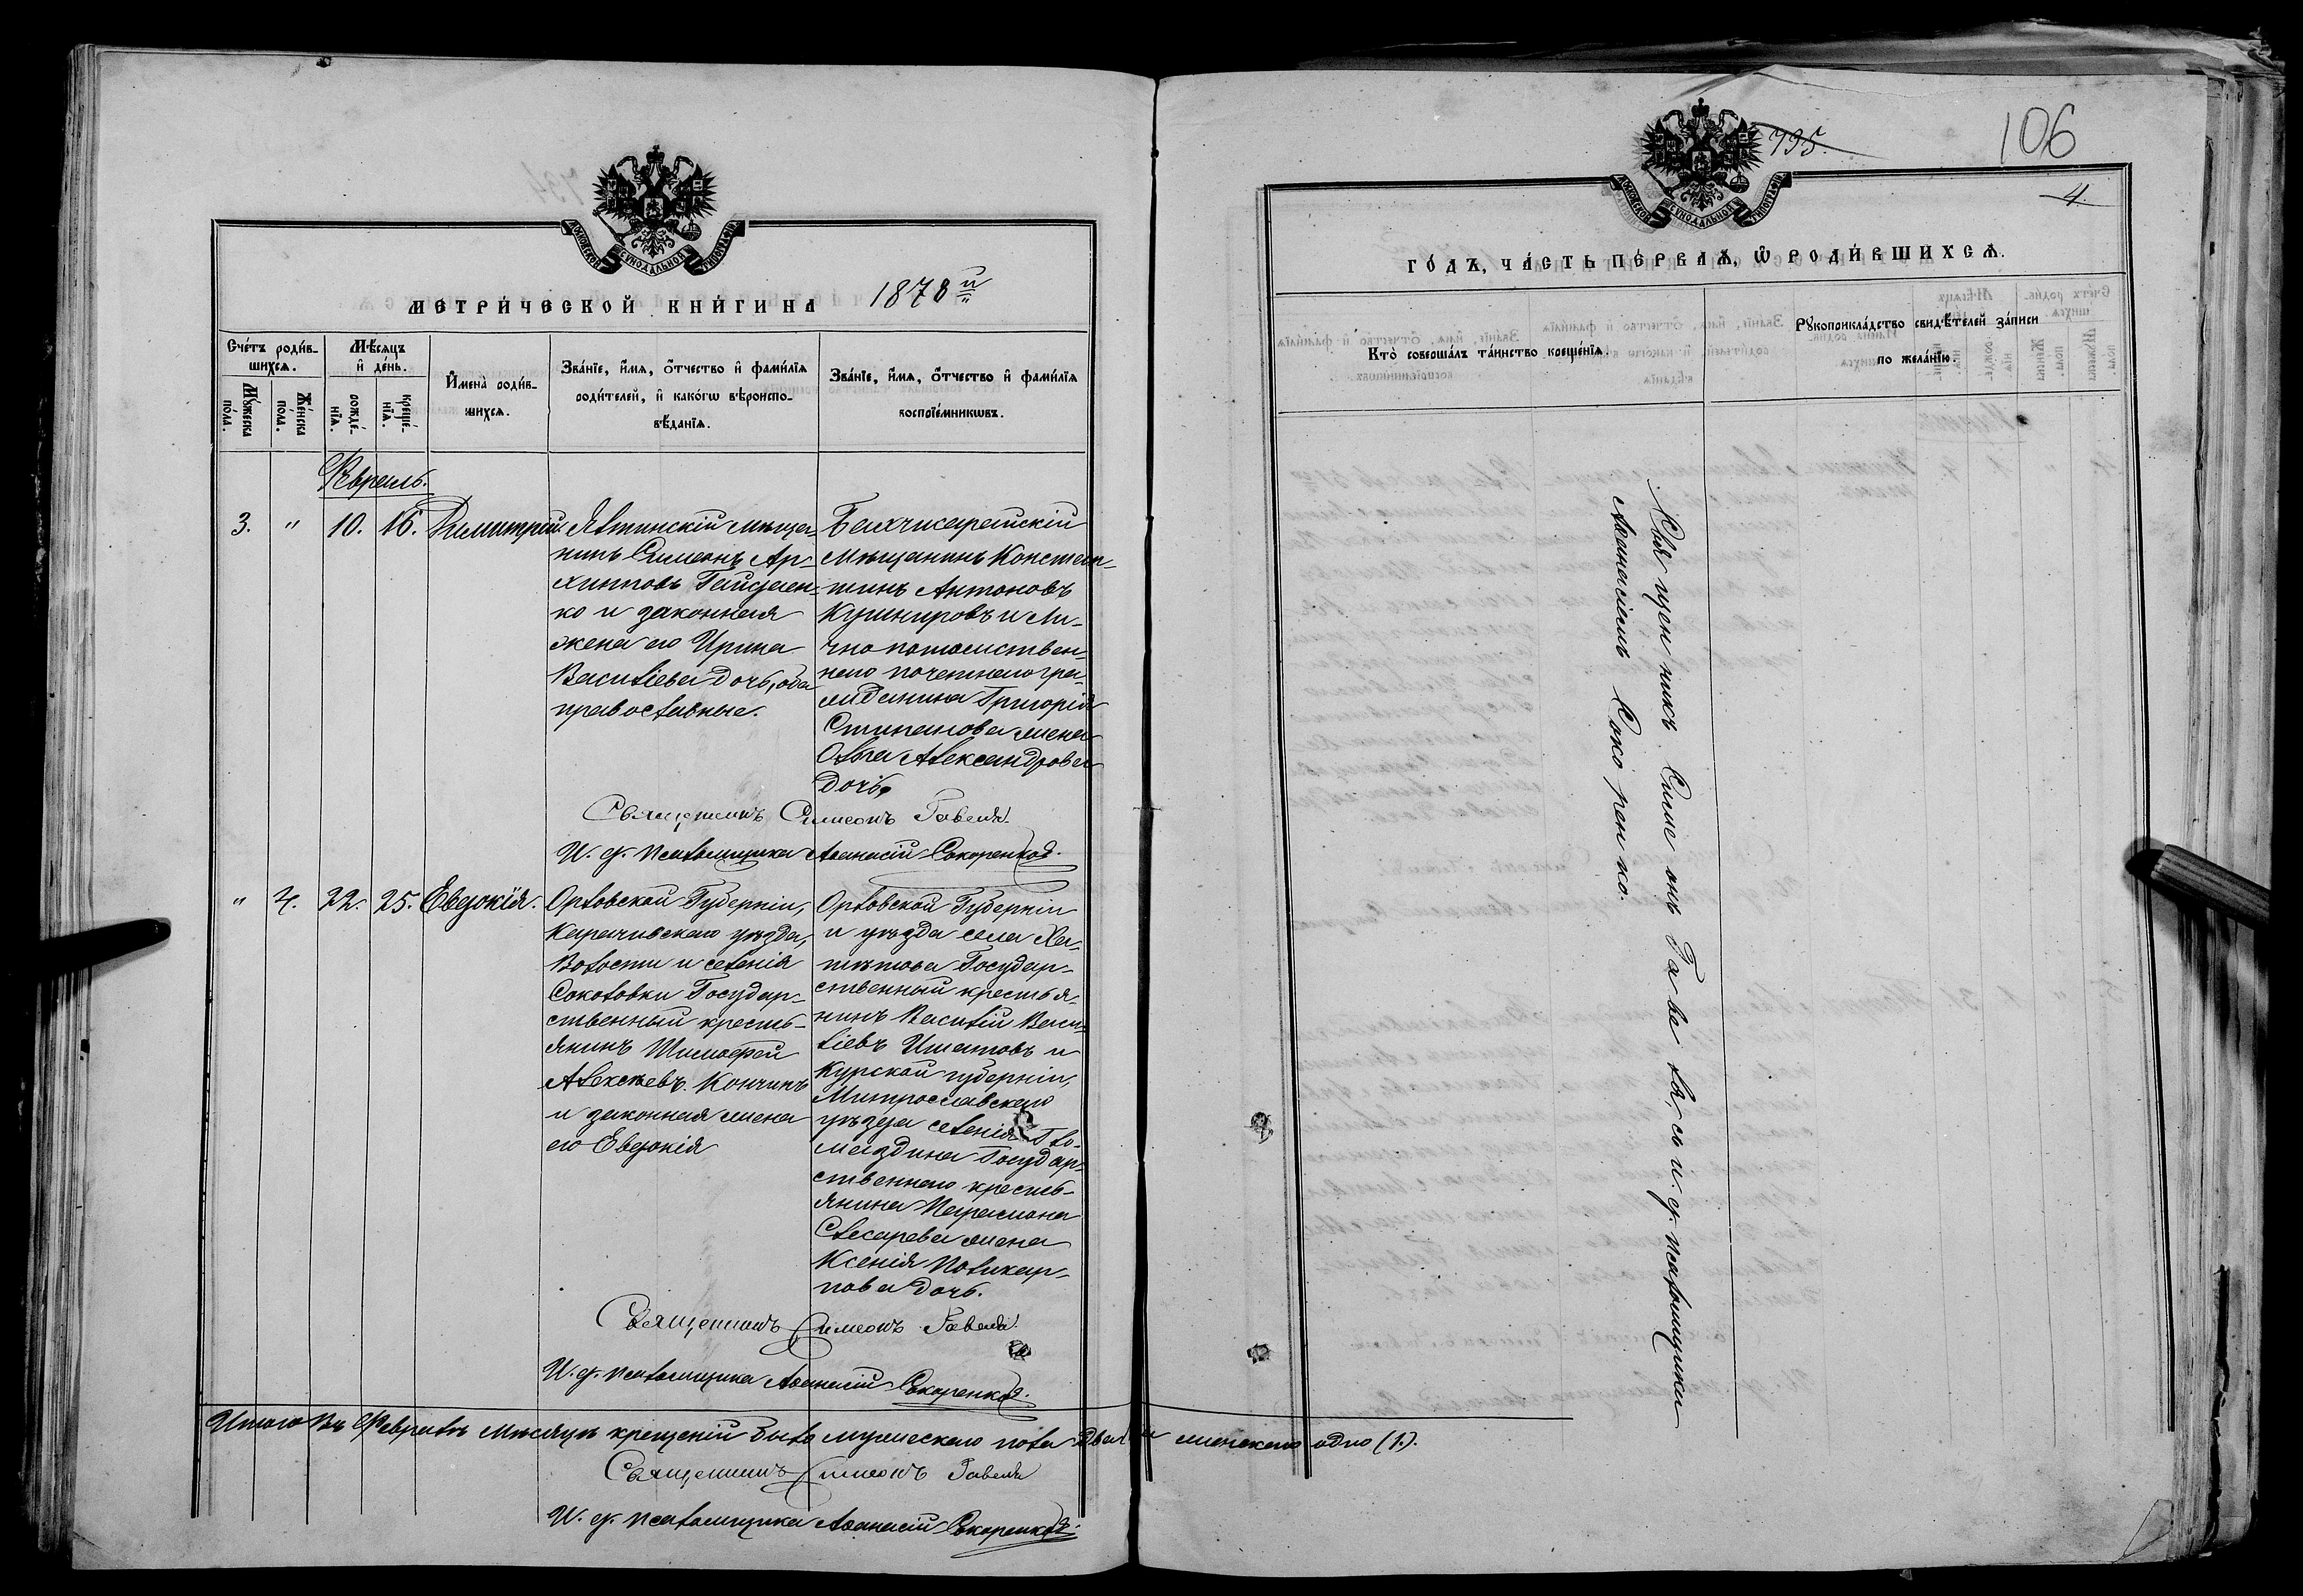 МОСКОВСКОЙ СУНОДАЛЬНОЙ ТИПОГРАФІИ
МЕТРИ́ЧЕСКОЙ КНИ́ГИ НА 1878й
Сче́тъ роди́в-
шихсѧ.
Мѣ́сѧцъ
и҆ де́нь.
Мꙋ́жеска
по́ла.
Же́нска
по́ла.
рожде́-
нїѧ.
креще́-
нїѧ.
И҆мена̀ роди́в-
шихсѧ.
Зва́нїе, и҆́мѧ, ѻ҆́тчество и҆ фами́лїѧ
роди́телей, и҆ како́гѡ вѣроиспо-
вѣ́данїѧ.
Зва́нїе, и҆́мѧ, ѻ҆́тчество и҆ фами́лїѧ
воспрїе́мникѡвъ.
Февраль.
3. " 10. 16. Димитрій
Ялтинскій мѣща-
нинъ Симеонъ Ар-
хиповъ Гайдаен-
ко и законная
жена его Ирина
Василіева дочь, оба
православные.
Бахчисарайскій
мѣщанинъ Констан-
тинъ Антоновъ
Кушнировъ и Ли-
чно потомствен-
наго почетнаго гра-
жданина Григорія
Степанова жена
Ольга Александрова
дочь.
Священникъ Симеонъ
И. д. псаломщика Аѳанасій Сокоренко.
" 4. 22. 25. Евдокія.
Орловской Губерніи,
Карачевскаго уѣзда,
Волости и селенія
Соколовки Государ-
ственный кресть-
янинъ Тимоѳей
Алексѣевъ Кончинъ
и законная жена
его Евдокія
Орловской Губерніи
и уѣзда села
Государ-
ственный крестья-
нинъ Василій Васи-
ліевъ Игнатовъ и
Курской губерніи,
уѣзда селенія
Государ-
ственнаго кресть-
янина
Слесарева жена
Ксенія Поликар-
пова дочь.
Священникъ Симеонъ
И. д. псаломщика Аѳанасій Сокоренко.
Итого въ Февралѣ мѣсяцѣ крещеній было мужескаго пола два и женскаго одно (1.).
Священникъ Симеонъ
И. д. псаломщика Аѳанасій Сокоренко.
795.
106
4.
МОСКОВСКОЙ СУНОДАЛЬНОЙ ТИПОГРАФІИ
ГО́ДЪ, ЧА́СТЬ ПЕ́РВАѦ, Ѡ҆ РОДИ́ВШИХСѦ.
Кто̀ соверша́лъ та́инство креще́нїѧ.
Рꙋкоприкла́дство свидѣ́телей за́писи
по жела́нїю.
Священникъ Симеонъ съ и. д. псаломщика
Аѳанасіемъ Сокоренко.